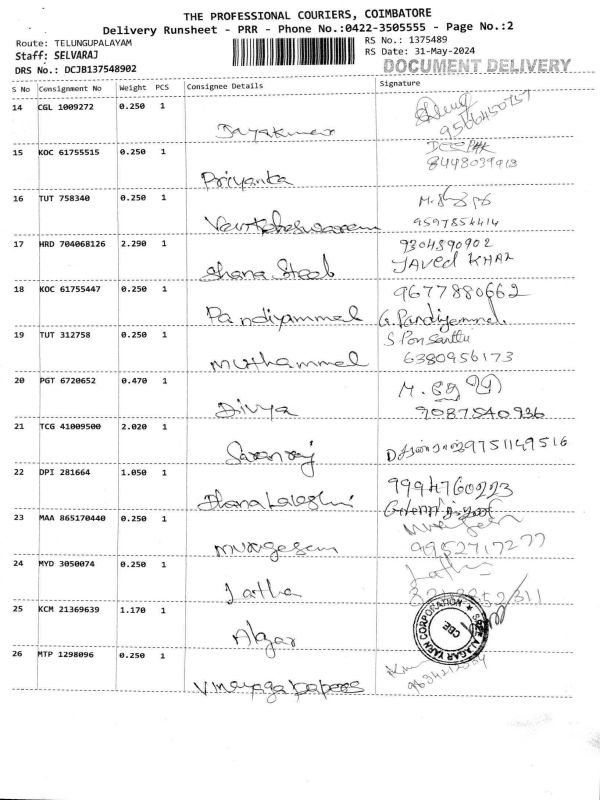 THE PROFESSIONAL COURIERS, COIMBATORE
Delivery Runsheet - PRR - Phone No.:0422-3505555 - Page No.:2
Route: TELUNGUPALAYAM
RS No.: 1375489
Staff: SELVARAJ
RS Date: 31-May-2024
DRS No.: DCJB137548902
DOCUMENT DELIVERY
S No Consignment No Weight PCS Consignee Details Signature
14 CGL 1009272 0.250 1
Jayakumar
9566450757
15 KOC 61755515 0.250 1 DEEPAK
Priyanka 8448039913
16 TUT 758340 0.250 1
Venkateswaran 9597854414
17 HRD 704068126 2.290 1 9304890902
Ghana Steel JAVED KHAN
18 KOC 61755447 0.250 1 9677880662
Pandiyammal G. Pandiyammal
19 TUT 312758 0.250 1 S Ponsanthu
Muthammal 6380956173
20 PGT 6720652 0.470 1
Divya 9087540936
21 TCG 41009500 2.020 1
Saranraj 9751149516
22 DPI 281664 1.050 1 9994760223
23 MAA 865170440 0.250 1 Murugesan
Murugesan 9952717277
24 MYD 3050074 0.250 1 Latha
Latha
25 KCM 21369639 1.170 1
Alagar
SREE ALAGAR YARN CORPORATION
CBE
26 MTP 1298096 0.250 1
Vinayaga papers